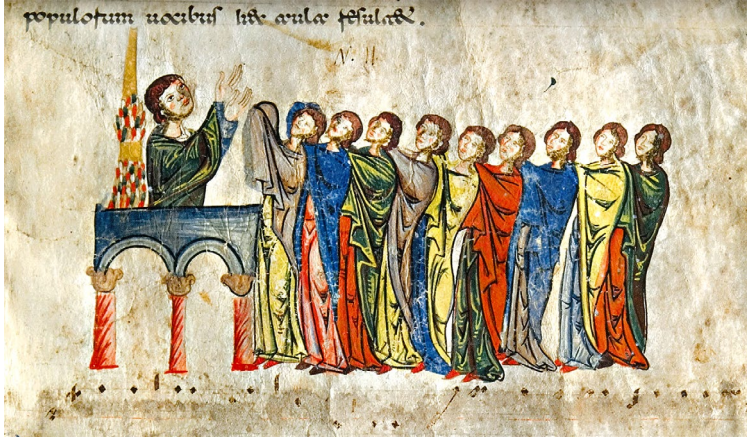 populorum uocibus hec aula resultet.
N. II